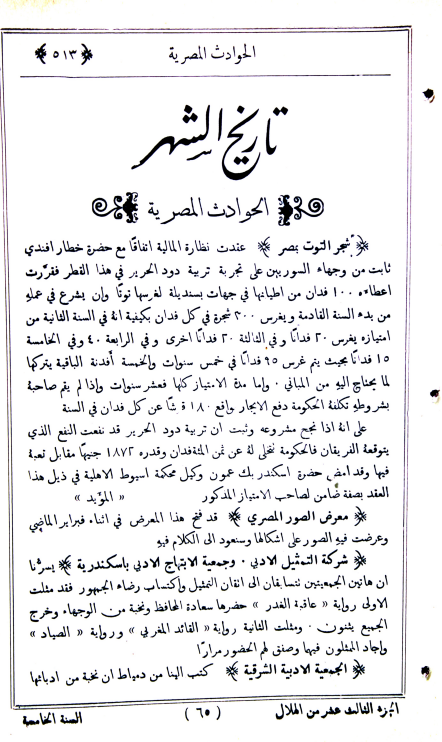 الحوادث المصرية
﴿ ٥١٣ ﴾
تاريخ الشهر
الحوادث المصرية
﴿ شجر التوت بمصر ﴾ عقدت نظارة المالية اتفاقًا مع حضرة خطار افندي
ثابت من وجهاء السوريين على تجربة تربية دود الحرير في هذا القطر فقررت
اعطاءه ١٠٠ فدان من اطيانها في جهات بسنديلة لغرسها توتًا وان يشرع في عمله
من بدء السنة القادمة ويغرس ٢٠٠ شجرة في كل فدان بكيفية انه في السنة الثانية من
امتيازه يغرس ٢٠ فدانًا وفي الثالثة ٢٠ فدانًا اخرى وفي الرابعة ٤٠ وفي الخامسة
١٥ فدانًا بحيث يتم غرس ٩٥ فدانًا في خمس سنوات والخمسة أفدنة الباقية يتركها
لما يحتاج اليهِ من المباني . واما مدة الامتياز كلها فعشر سنوات واذا لم يقم صاحبهُ
بشروطهِ تكلفهُ الحكومة دفع الايجار بواقع ١٨٠ قرشًا عن كل فدان في السنة
على انهُ اذا نجح مشروعه وثبت ان تربية دود الحرير قد نفعت النفع الذي
يتوقعهُ الفريقان فالحكومة تتخلى لهُ عن ثمن المئة فدان وقدره ١٨٧٢ جنيهًا مقابل تعبهُ
فيها وقد امضى حضرة اسكندر بك عمون وكيل محكمة اسيوط الاهلية في ذيل هذا
العقد بصفة ضامن لصاحب الامتياز المذكور « المؤيد »
﴿ معرض الصور المصري ﴾ قد فتح هذا المعرض في اثناء فبراير الماضي
وعرضت فيهِ الصور على اشكالها وسنعود الى الكلام فيهِ
﴿ شركة التمثيل الادبي . وجمعية الابتهاج الادبي باسكندرية ﴾ يسرنا
ان هاتين الجمعيتين تتسابقان الى اتقان التمثيل واكتساب رضاء الجمهور فقد مثلت
الاولى رواية « عاقبة الغدر » حضرها سعادة المحافظ ونخبة من الوجهاء وخرج
الجميع يثنون . ومثلت الثانية رواية « القائد المغربي » ورواية « الصياد »
واجاد الممثلون فيها وصفق لهم الحضور مرارًا
﴿ الجمعية الادبية الشرقية ﴾ كتب الينا من دمياط ان نخبة من ادبائها
الجزء الثالث عشر من الهلال
( ٦٥ )
السنة الخامسة